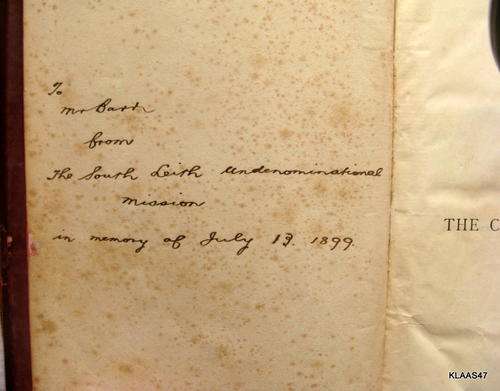 To
Mr Barr
from
The South Leith Undenominational
Mission
in memory of July 13. 1899.
THE C
KLAAS47